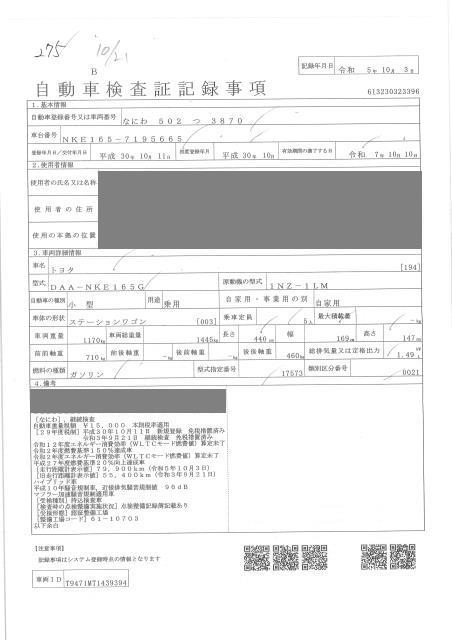 275 10/21
B
記録年月日 令和 5年10月 3日
自動車検査証記録事項
613230323396
1.基本情報
自動車登録番号又は車両番号 なにわ 502 つ 3870
車台番号 NKE165-7195665
登録年月日/交付年月日 平成 30年10月 11日 初度登録年月 平成 30年 10月 有効期間の満了する日 令和 7年10月10日
2.使用者情報
使用者の氏名又は名称
使用者の住所
使用の本拠の位置
3.車両詳細情報
車名 トヨタ [194]
型式 DAA-NKE165G 原動機の型式 1NZ-1LM
自動車の種別 小 型 用途 乗用 自家用・事業用の別 自家用
車体の形状 ステーションワゴン [003] 乗車定員 5人 最大積載量 -kg
車両重量 1170kg 車両総重量 1445kg 長さ 440cm 幅 169cm 高さ 147cm
前前軸重 710kg 前後軸重 -kg 後前軸重 -kg 後後軸重 460kg 総排気量又は定格出力 1.49L
燃料の種類 ガソリン 型式指定番号 17573 類別区分番号 0021
4.備考
[なにわ],継続検査
自動車重量税額 ¥15,000 本則税率適用
[29年度税制]平成30年10月11日 新規登録 免税措置済み
令和3年9月21日 継続検査 免税措置済み
令和12年度エネルギー消費効率(WLTCモード燃費値)算定未了
令和2年度燃費基準150%達成車
令和2年度エネルギー消費効率(WLTCモード燃費値)算定未了
平成27年度燃費基準20%向上達成車
[走行距離計表示値]79,900km(令和5年10月3日)
[旧走行距離計表示値]55,400km(令和3年9月21日)
ハイブリッド車
平成10年騒音規制車,近接排気騒音規制値 96dB
マフラー加速騒音規制適用車
[受検種別]持込検査車
[検査時の点検整備実施状況]点検整備記録簿記載あり
[受検形態]認証整備工場
[整備工場コード]61-10703
以下余白
[注意事項]
記録事項はシステム登録時点の情報となります
車両ID T9471MT1439394